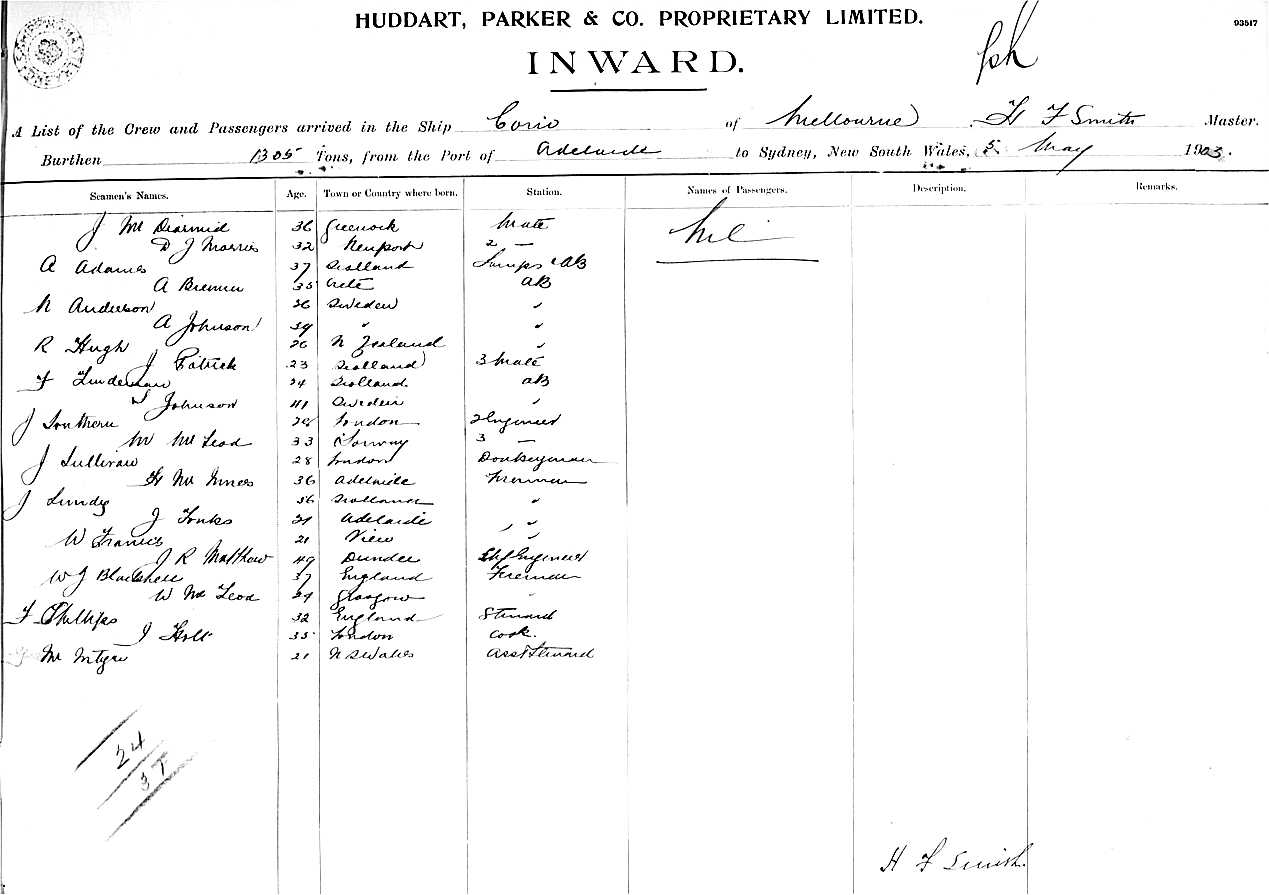 HUDDART, PARKER & CO. PROPRIETARY LIMITED.
93517
INWARD.
A List of the Crew and Passengers arrived in the Ship Corio of Melbourne H F Smith Master.
Burthen 1305 Tons, from the Port of Adelaide to Sydney, New South Wales, 5 May 1903.
Seamen's Names. Age. Town or Country where born. Station. Names of Passengers. Description. Remarks.
J Mc Diarmid 36 Greenock Mate Nil
D J Morris 32 Newport 2 —
A Adams 37 Scotland Lamps & AB
A 35 Crete AB
N Anderson 26 Sweden "
A Johnson 39 " "
R Hugh 26 N Zealand "
J Patrick 23 Scotland 3 Mate
F 24 Scotland AB
Johnson 41 Sweden "
J Southern 28 London 2 Engineer
M McLeod 33 Norway 3 —
J Sullivan 28 London Donkeyman
H McInnes 36 Adelaide Fireman
J Lundy 36 Scotland "
J Tonks 21 Adelaide "
W Francis 21 View "
J R Matthew 49 Dundee Chf Engineer
W J 37 England Fireman
W McLeod 29 Glasgow "
F Phillips 32 England Steward
J Holt 35 London Cook.
McIntyre 21 N S Wales Asst Steward
24
37
H F Smith.